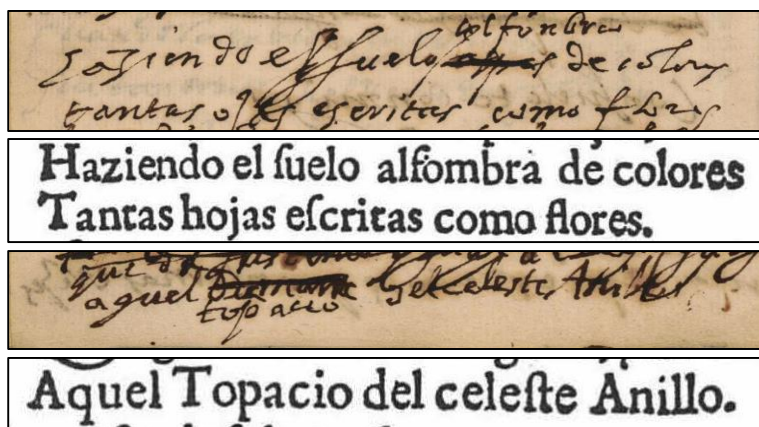 alfonbra
haziendo el suelo de colores
tantas ojas escritas como flores
Haziendo el ſuelo alfombra de colores
Tantas hojas eſcritas como flores.
que
aquel Diamante del celeste Anillo
topacio
Aquel Topacio del celeſte Anillo.